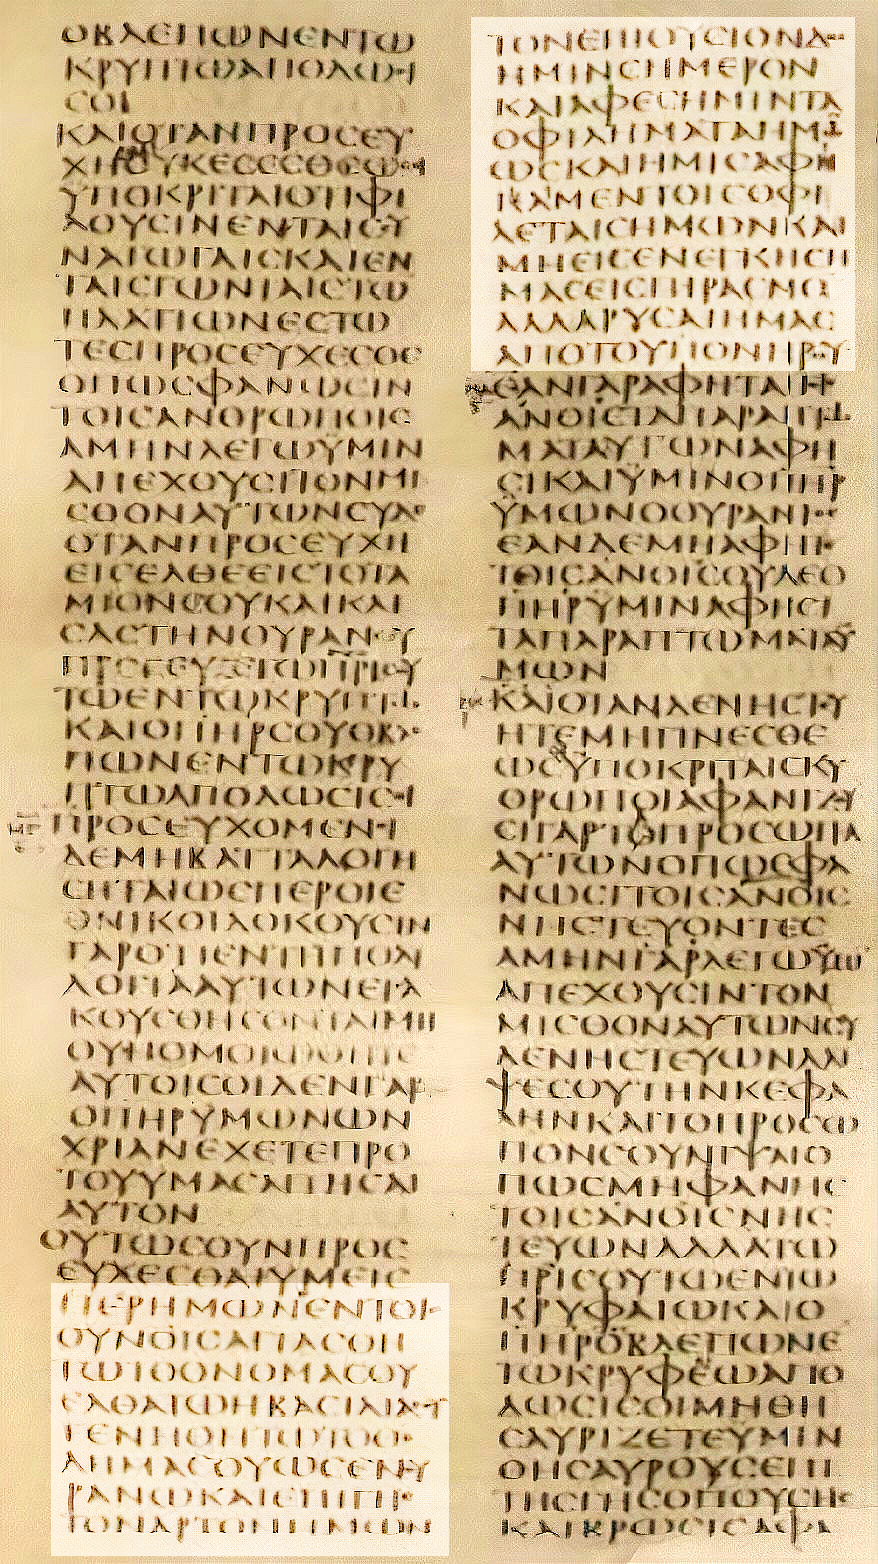 ΟΒΛΕΠΩΝΕΝΤΩ
ΚΡΥΠΤΩΑΠΟΔΩϹΙ
ϹΟΙ
ΚΑΙΟΤΑΝΠΡΟϹΕΥ
ΧΗΟΥΚΕϹΕϹΘΕΩϹΟΙ
ΥΠΟΚΡΙΤΑΙΟΤΙΦΙ
ΛΟΥϹΙΝΕΝΤΑΙϹϹΥ
ΝΑΓΩΓΑΙϹΚΑΙΕΝ
ΤΑΙϹΓΩΝΙΑΙϹΤΩ
ΠΛΑΤΙΩΝΕϹΤΩ
ΤΕϹΠΡΟϹΕΥΧΕϹΘΕ
ΟΠΩϹΦΑΝΩϹΙΝ
ΤΟΙϹΑΝΘΡΩΠΟΙϹ
ΑΜΗΝΛΕΓΩΫΜΙΝ
ΑΠΕΧΟΥϹΙΤΟΝΜΙ
ϹΘΟΝΑΥΤΩΝϹΥΔΕ
ΟΤΑΝΠΡΟϹΕΥΧΗ
ΕΙϹΕΛΘΕΕΙϹΤΟΤΑ
ΜΙΟΝϹΟΥΚΑΙΚΛΙ
ϹΑϹΤΗΝΘΥΡΑΝϹΟΥ
ΠΡΟϹΕΥΞΕΤΩΠΡΙϹΟΥ
ΤΩΕΝΤΩΚΡΥΠΤΩ
ΚΑΙΟΠΗΡϹΟΥΟΒΛΕ
ΠΩΝΕΝΤΩΚΡΥ
ΠΤΩΑΠΟΔΩϹΙϹΟΙ
ΠΡΟϹΕΥΧΟΜΕΝΟΙ
ΔΕΜΗΒΑΤΤΑΛΟΓΗ
ϹΗΤΑΙΩϹΠΕΡΟΙΕ
ΘΝΙΚΟΙΔΟΚΟΥϹΙΝ
ΓΑΡΟΤΙΕΝΤΗΠΟΛΥ
ΛΟΓΙΑΑΥΤΩΝΕΙϹΑ
ΚΟΥϹΘΗϹΟΝΤΑΙΜΗ
ΟΥΝΟΜΟΙΩΘΗΤΕ
ΑΥΤΟΙϹΟΙΔΕΝΓΑΡ
ΟΠΗΡΥΜΩΝΩΝ
ΧΡΙΑΝΕΧΕΤΕΠΡΟ
ΤΟΥΥΜΑϹΑΙΤΗϹΑΙ
ΑΥΤΟΝ
ΟΥΤΩϹΟΥΝΠΡΟϹ
ΕΥΧΕϹΘΑΙΥΜΕΙϹ
ΠΕΡΗΜΩΝΕΝΤΟΙϹ
ΟΥΝΟΙϹΑΓΙΑϹΘΗ
ΤΩΤΟΟΝΟΜΑϹΟΥ
ΕΛΘΑΤΩΗΒΑϹΙΛΙΑϹΟΥ
ΓΕΝΗΘΗΤΩΤΟΘΕ
ΛΗΜΑϹΟΥΩϹΕΝΟΥ
ΡΑΝΩΚΑΙΕΠΙΓΗϹ
ΤΟΝΑΡΤΟΝΗΜΩΝ
ΤΟΝΕΠΙΟΥϹΙΟΝΔΟϹ
ΗΜΙΝϹΗΜΕΡΟΝ
ΚΑΙΑΦΕϹΗΜΙΝΤΑ
ΟΦΙΛΗΜΑΤΑΗΜΩ
ΩϹΚΑΙΗΜΙϹΑΦΗ
ΚΑΜΕΝΤΟΙϹΟΦΙ
ΛΕΤΑΙϹΗΜΩΝΚΑΙ
ΜΗΕΙϹΕΝΕΓΚΗϹΗ
ΜΑϹΕΙϹΠΙΡΑϹΜΟ
ΑΛΛΑΡΥϹΑΙΗΜΑϹ
ΑΠΟΤΟΥΠΟΝΗΡΟΥ
ΕΑΝΓΑΡΑΦΗΤΑΙ
ΑΝΟΙϹΤΑΠΑΡΑΠΤΩ
ΜΑΤΑΑΥΤΩΝΑΦΗ
ϹΙΚΑΙΫΜΙΝΟΠΗΡ
ΫΜΩΝΟΟΥΡΑΝΙΟϹ
ΕΑΝΔΕΜΗΑΦΗΤΕ
ΤΟΙϹΑΝΟΙϹΟΥΔΕΟ
ΠΗΡΫΜΙΝΑΦΗϹΙ
ΤΑΠΑΡΑΠΤΩΜΑΤΑΫ
ΜΩΝ
ΚΑΙΟΤΑΝΔΕΝΗϹΤΕΥ
ΗΤΕΜΗΓΙΝΕϹΘΕ
ΩϹΫΠΟΚΡΙΤΑΙϹΚΥ
ΘΡΩΠΟΙΑΦΑΝΙΖΟΥ
ϹΙΓΑΡΤΟΠΡΟϹΩΠΑ
ΑΥΤΩΝΟΠΩϹΦΑ
ΝΩϹΙΤΟΙϹΑΝΟΙϹ
ΝΗϹΤΕΥΟΝΤΕϹ
ΑΜΗΝΓΑΡΛΕΓΩΫΜΙ
ΑΠΕΧΟΥϹΙΝΤΟΝ
ΜΙϹΘΟΝΑΥΤΩΝϹΥ
ΔΕΝΗϹΤΕΥΩΝΑΛΙ
ΨΕϹΟΥΤΗΝΚΕΦΑ
ΛΗΝΚΑΙΤΟΠΡΟϹΩ
ΠΟΝϹΟΥΝΙΨΑΙΟ
ΠΩϹΜΗΦΑΝΗϹ
ΤΟΙϹΑΝΟΙϹΝΗϹ
ΤΕΥΩΝΑΛΛΑΤΩ
ΠΡΙϹΟΥΤΩΕΝΤΩ
ΚΡΥΦΑΙΩΚΑΙΟ
ΠΗΡΟΒΛΕΠΩΝΕ
ΤΩΚΡΥΦΕΩΑΠΟ
ΔΩϹΙϹΟΙΜΗΘΗ
ϹΑΥΡΙΖΕΤΕΥΜΙΝ
ΘΗϹΑΥΡΟΥϹΕΠΙ
ΤΗϹΓΗϹΟΠΟΥϹΗϹ
ΚΑΙΒΡΩϹΙϹΑΦΑ